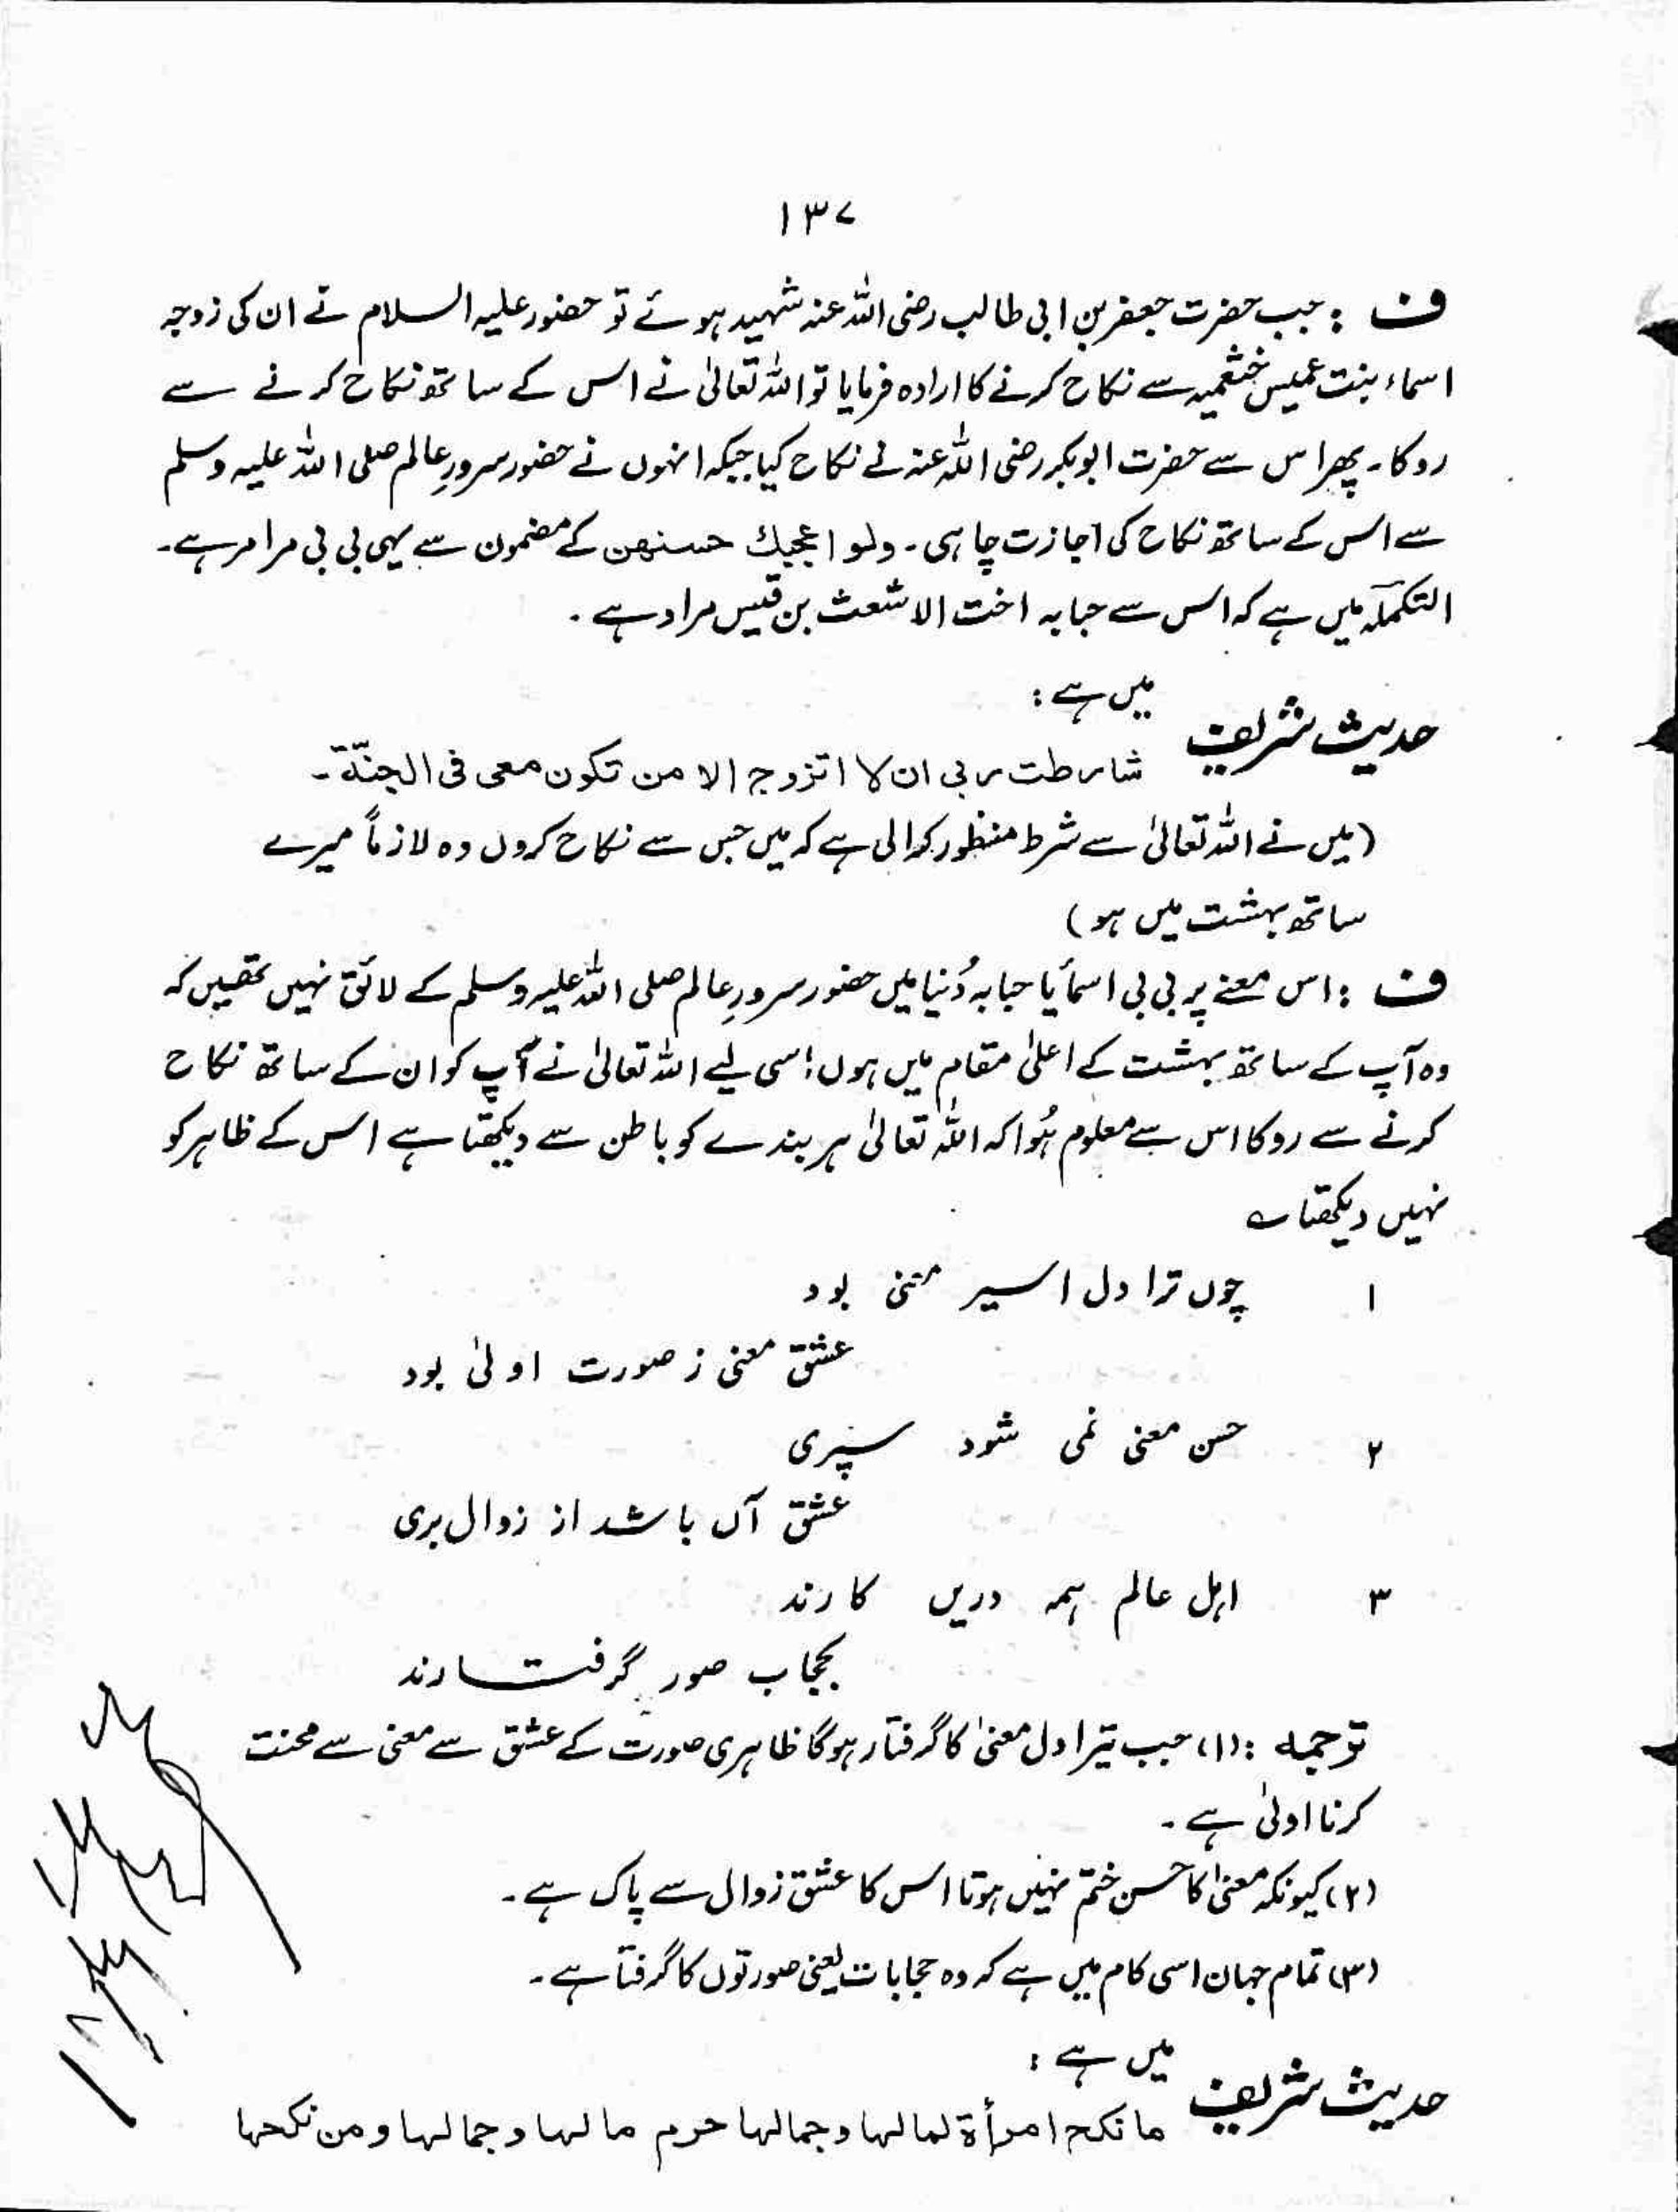 ۱۳۷
ف : جب حضرت جعفر بن ابی طالب رضی اللہ عنہ شہید ہوئے تو حضور علیہ السلام نے ان کی زوجہ
اسماء بنت عمیس خثعمیہ سے نکاح کرنے کا ارادہ فرمایا تو اللہ تعالیٰ نے اس کے ساتھ نکاح کرنے سے
روکا۔ پھر اس سے حضرت ابوبکر رضی اللہ عنہ نے نکاح کیا جبکہ انہوں نے حضور سرورِ عالم صلی اللہ علیہ وسلم
سے اس کے ساتھ نکاح کی اجازت چاہی۔ ولو اعجبك حسنهن کے مضمون سے یہی بی بی مرامر ہے۔
التکملہ میں ہے کہ اس سے حبابہ اخت الاشعث بن قیس مراد ہے۔
حدیث شریف میں ہے :
شارطت ربی ان لا اتزوج الا من تکون معی فی الجنّة۔
(میں نے اللہ تعالیٰ سے شرط منظور کرا لی ہے کہ میں جس سے نکاح کروں وہ لازماً میرے
ساتھ بہشت میں ہو)
ف : اس معنے پر بی بی اسماء یا حبابہ دُنیا میں حضور سرورِ عالم صلی اللہ علیہ وسلم کے لائق نہیں تھیں کہ
وہ آپ کے ساتھ بہشت کے اعلیٰ مقام میں ہوں؛ اسی لیے اللہ تعالیٰ نے آپ کو ان کے ساتھ نکاح
کرنے سے روکا اس سے معلوم ہُوا کہ اللہ تعالیٰ ہر بندے کو باطن سے دیکھتا ہے اس کے ظاہر کو
نہیں دیکھتا ؎
۱ چوں ترا دل اسیر معنی بود
عشق معنی ز صورت اولیٰ بود
۲ حسن معنی نمی شود سپری
عشق آں باشد از زوال بری
۳ اہل عالم ہمہ دریں کارند
بحجاب صور گرفتارند
ترجمہ : (۱) جب تیرا دل معنیٰ کا گرفتار ہوگا ظاہری صورت کے عشق سے معنی سے محنت
کرنا اولیٰ ہے۔
(۲) کیونکہ معنیٰ کا حسن ختم نہیں ہوتا اس کا عشق زوال سے پاک ہے۔
(۳) تمام جہان اسی کام میں ہے کہ وہ حجابات یعنی صورتوں کا گرفتا ہے۔
حدیث شریف میں ہے :
ما نکح امرأة لمالها وجمالها حرم مالها وجمالها ومن نکحها